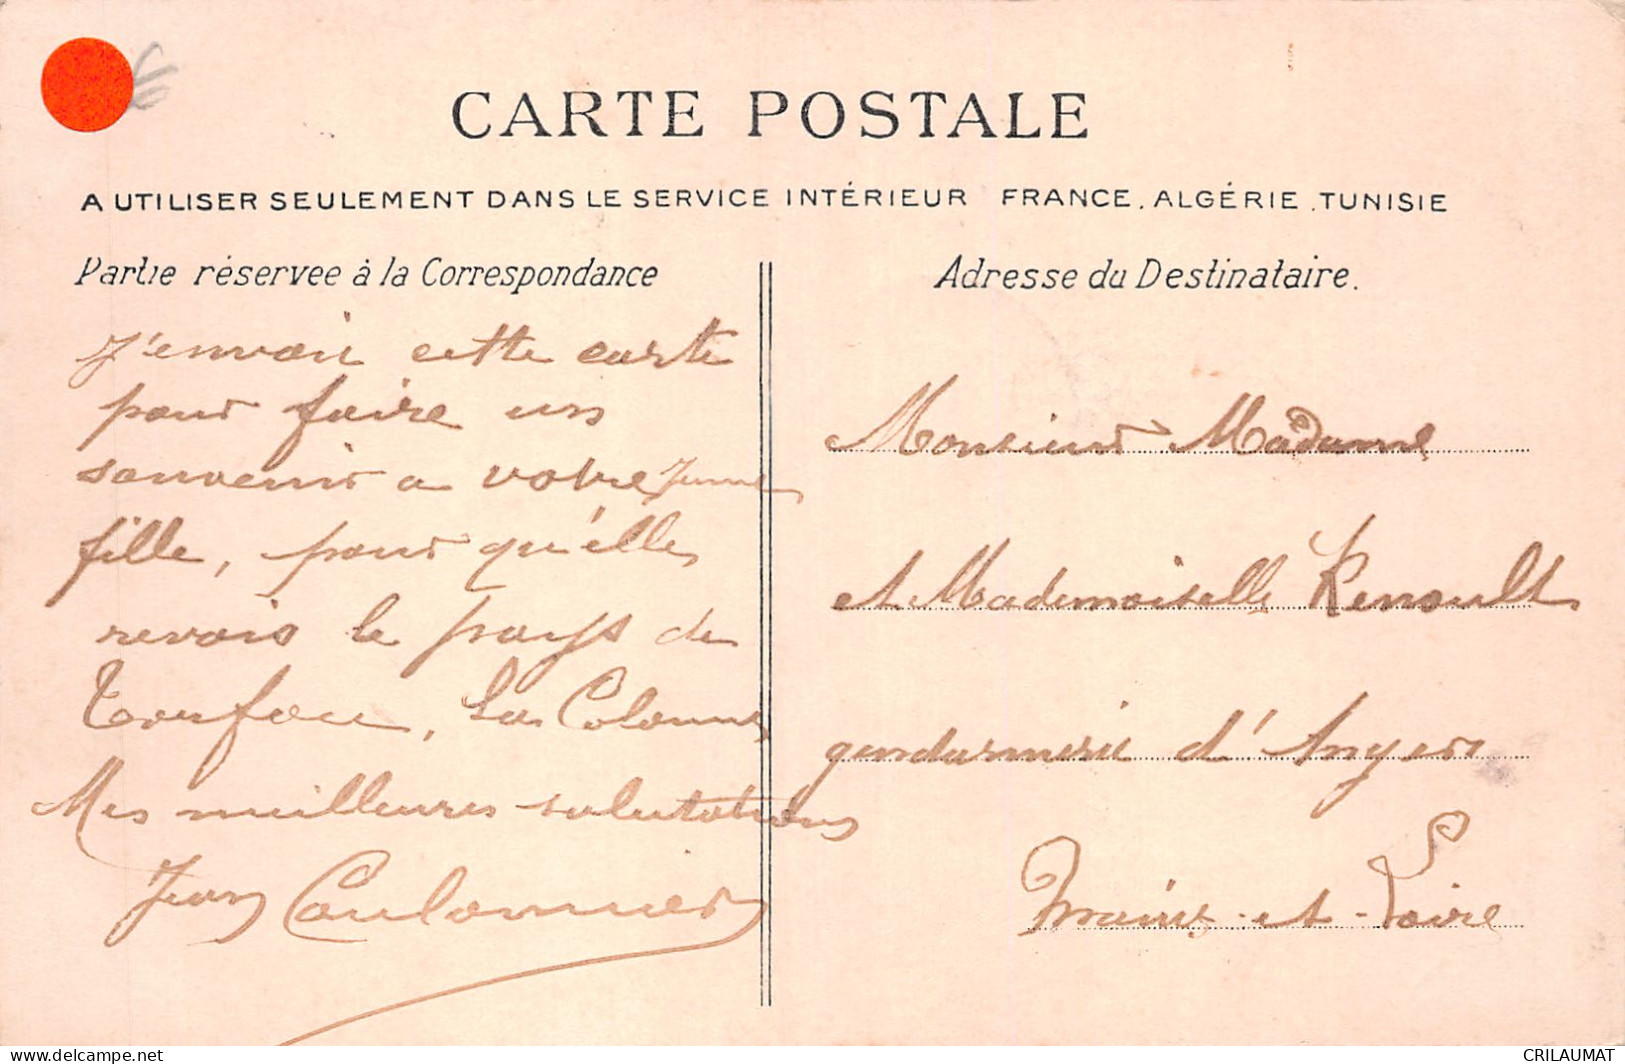 CARTE POSTALE
A UTILISER SEULEMENT DANS LE SERVICE INTÉRIEUR FRANCE, ALGÉRIE, TUNISIE
Partie réservée à la Correspondance
J'envoi cette carte
pour faire un
souvenir a votre jeune
fille, pour qu'elle
revois le pays de
Torfou, La Colonne
Mes meilleures salutations
Jean Coulonnier
Adresse du Destinataire.
Monsieur Madame
et Mademoiselle Renoult
gendarmerie d'Angers
Maine-et-Loire
www.delcampe.net
CRILAUMAT